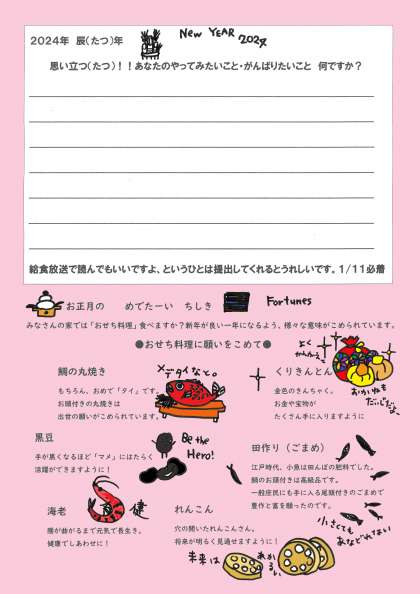 2024年 辰(たつ)年
New YEAR 2024
思い立つ(たつ)!!あなたのやってみたいこと・がんばりたいこと 何ですか?
給食放送で読んでもいいですよ、というひとは提出してくれるとうれしいです。1/11必着
お正月の めでたーい ちしき
Fortunes
みなさんの家では「おせち料理」食べますか?新年が良い一年になるよう、様々な意味がこめられています。
●おせち料理に願いをこめて●
鯛の丸焼き
メデタイなと。
もちろん、おめで「タイ」です。
お頭付きの丸焼きは
出世の願いがこめられています。
くりきんとん
よく
かんがえて
金色のきんちゃく。
お金や宝物が
たくさん手に入りますように
おかねも
だいじだよ
黒豆
手が黒くなるほど「マメ」にはたらく
活躍ができますように!
Be the
Hero!
田作り(ごまめ)
江戸時代、小魚は田んぼの肥料でした。
鯛のお頭付きは高級品です。
一般庶民にも手に入る尾頭付きのごまめで
豊作と富を願ったのです。
小さくても
あなどれない
海老
健
腰が曲がるまで元気で長生き。
健康でしあわせに!
れんこん
穴の開いたれんこんさん。
将来が明るく見通せますように!
未来は
あかるい